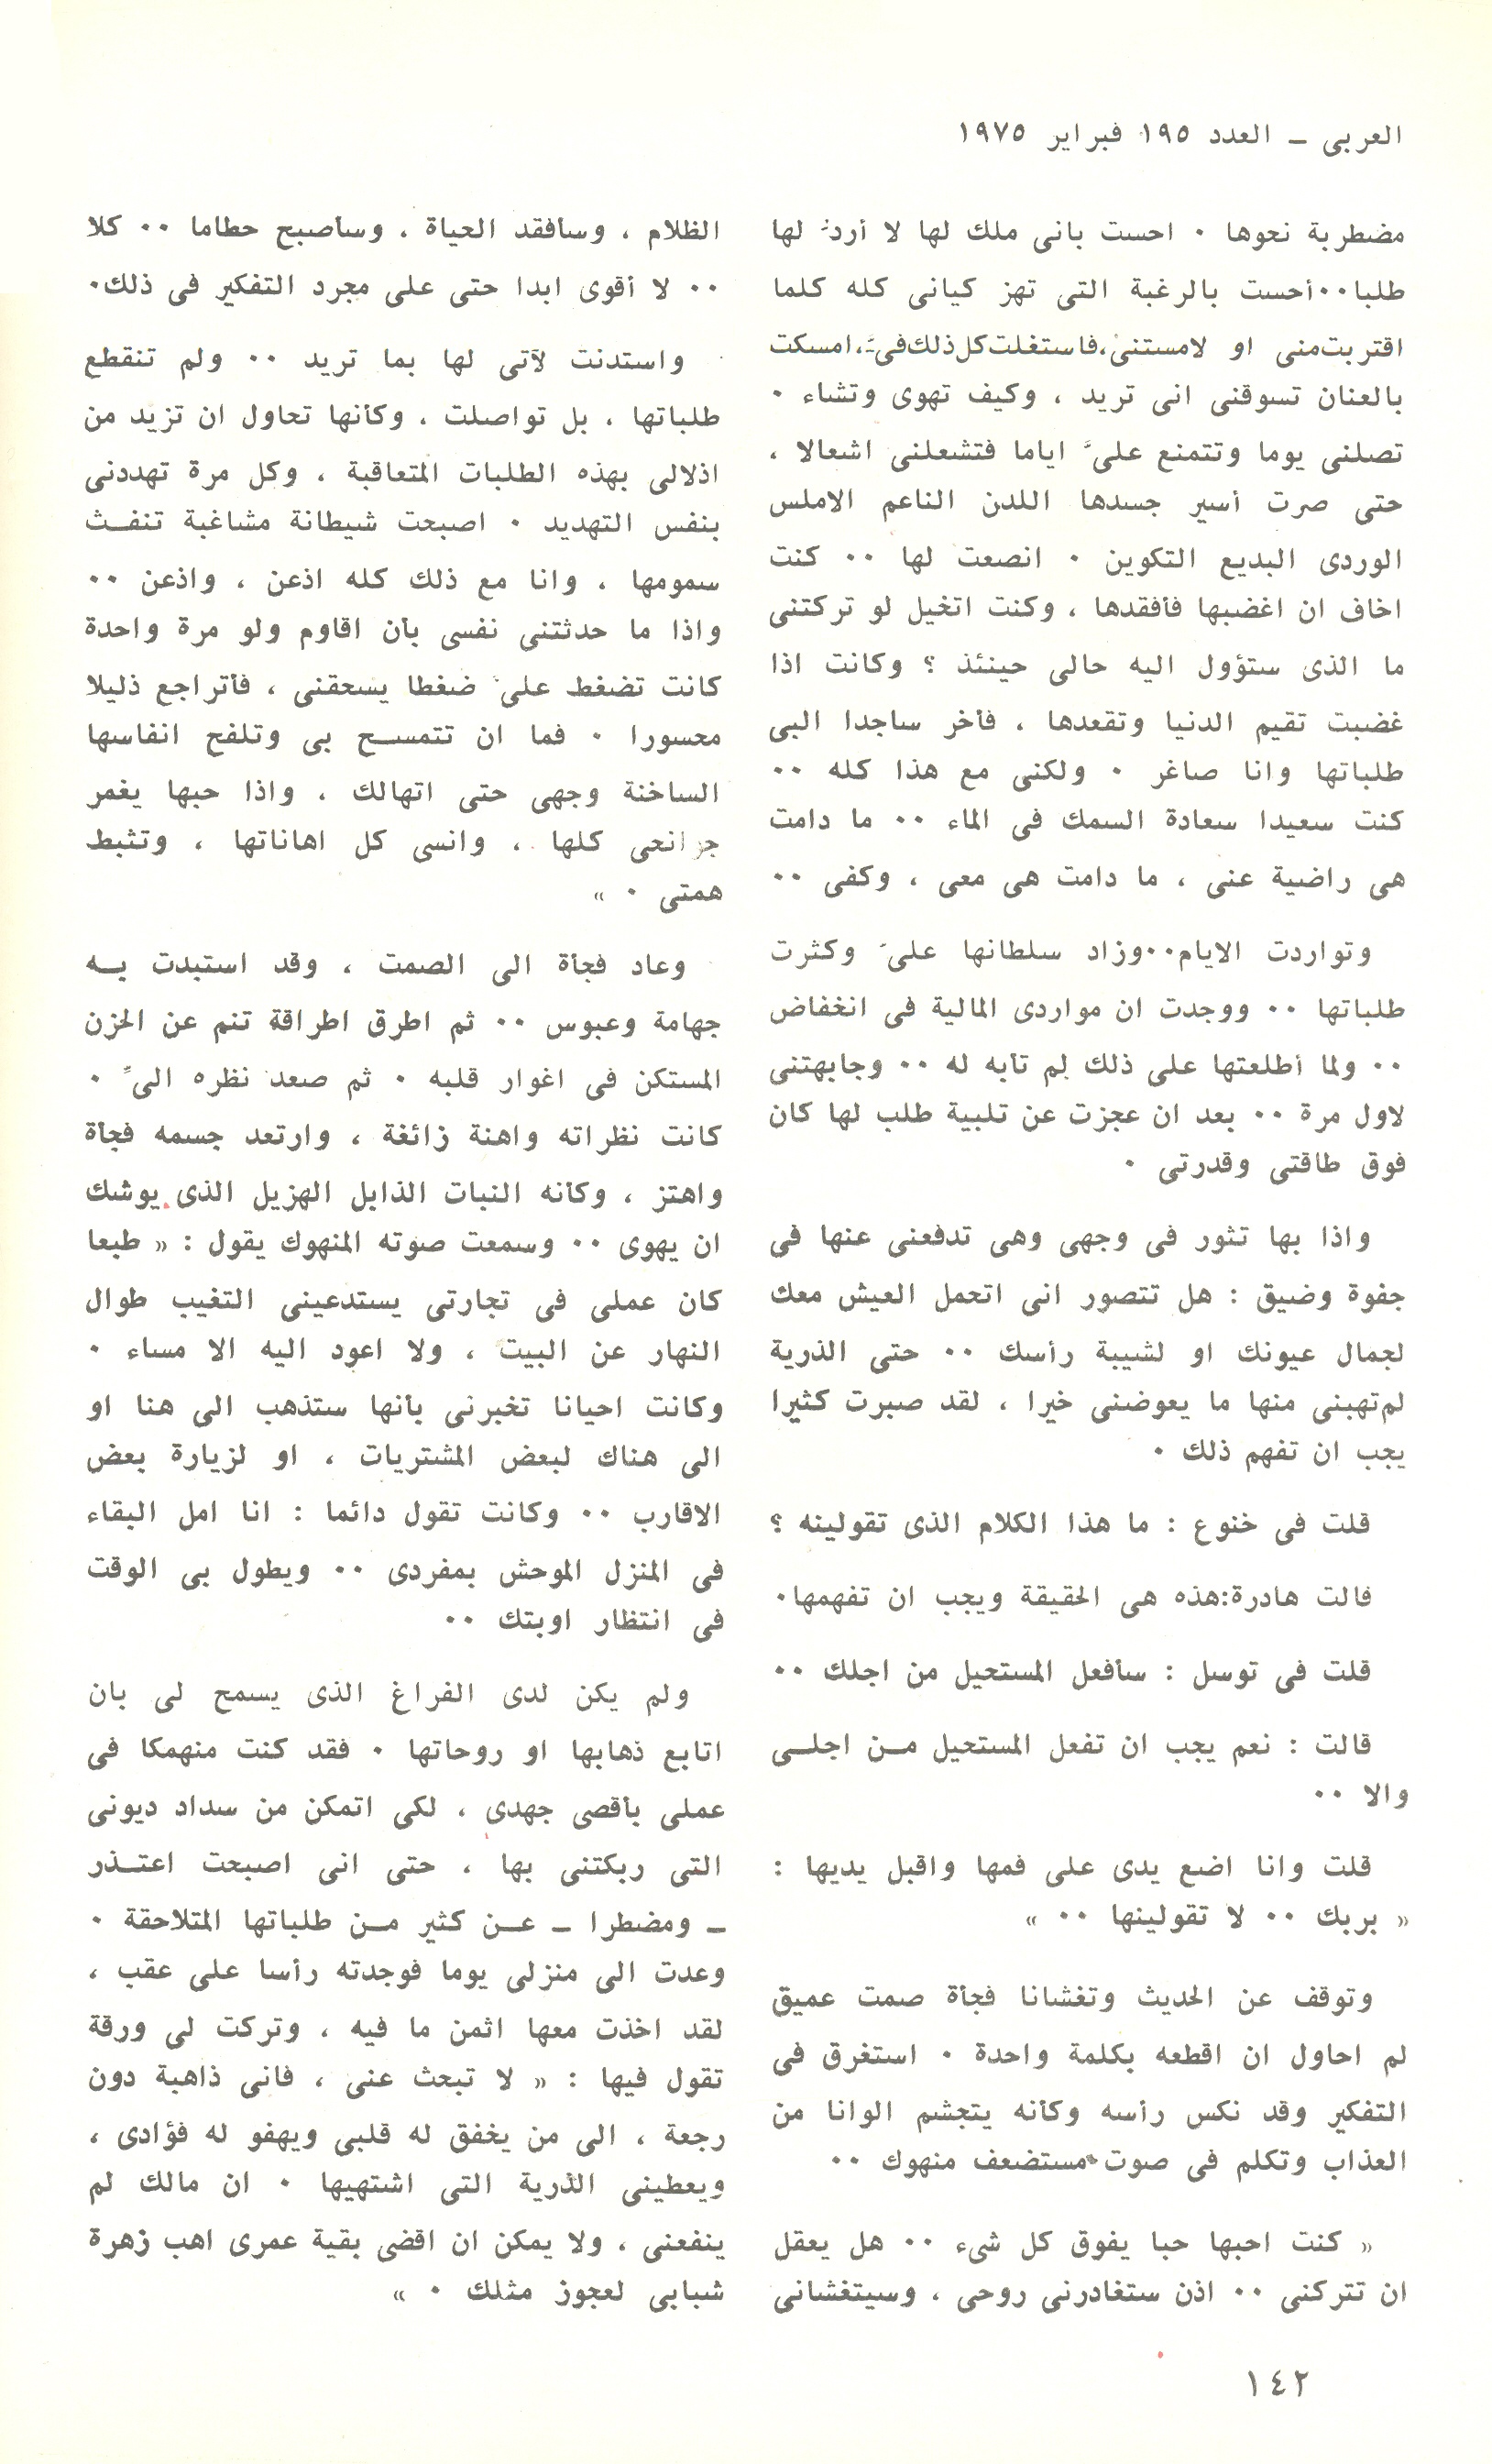 العربى ـ العدد ١٩٥ فبراير ١٩٧٥
مضطربة نحوها ٠ احست بانى ملك لها لا أردّ لها
طلبا ٠٠ أحست بالرغبة التى تهز كيانى كله كلما
اقتربت منى او لامستنى ، فاستغلت كل ذلك فىّ ، امسكت
بالعنان تسوقنى انى تريد ، وكيف تهوى وتشاء ٠
تصلنى يوما وتتمنع علىّ اياما فتشعلنى اشعالا ،
حتى صرت أسير جسدها اللدن الناعم الاملس
الوردى البديع التكوين ٠ انصعت لها ٠٠ كنت
اخاف ان اغضبها فأفقدها ، وكنت اتخيل لو تركتنى
ما الذى ستؤول اليه حالى حينئذ ؟ وكانت اذا
غضبت تقيم الدنيا وتقعدها ، فأخر ساجدا البى
طلباتها وانا صاغر ٠ ولكنى مع هذا كله ٠٠
كنت سعيدا سعادة السمك فى الماء ٠٠ ما دامت
هى راضية عنى ، ما دامت هى معى ، وكفى ٠٠
وتواردت الايام ٠٠ وزاد سلطانها علىّ وكثرت
طلباتها ٠٠ ووجدت ان مواردى المالية فى انخفاض
٠٠ ولما أطلعتها على ذلك لم تأبه له ٠٠ وجابهتنى
لاول مرة ٠٠ بعد ان عجزت عن تلبية طلب لها كان
فوق طاقتى وقدرتى ٠
واذا بها تثور فى وجهى وهى تدفعنى عنها فى
جفوة وضيق : هل تتصور انى اتحمل العيش معك
لجمال عيونك او لشيبة رأسك ٠٠ حتى الذرية
لم تهبنى منها ما يعوضنى خيرا ، لقد صبرت كثيرا
يجب ان تفهم ذلك ٠
قلت فى خنوع : ما هذا الكلام الذى تقولينه ؟
قالت هادرة : هذه هى الحقيقة ويجب ان تفهمها ٠
قلت فى توسل : سأفعل المستحيل من اجلك ٠٠
قالت : نعم يجب ان تفعل المستحيل مـن اجلـى
والا ٠٠
قلت وانا اضع يدى على فمها واقبل يديها :
« بربك ٠٠ لا تقولينها ٠٠ »
وتوقف عن الحديث وتغشانا فجأة صمت عميق
لم احاول ان اقطعه بكلمة واحدة ٠ استغرق فى
التفكير وقد نكس رأسه وكأنه يتجشم الوانا من
العذاب وتكلم فى صوت مستضعف منهوك ٠٠
« كنت احبها حبا يفوق كل شىء ٠٠ هل يعقل
ان تتركنى ٠٠ اذن ستغادرنى روحى ، وسيتغشانى
الظلام ، وسأفقد الحياة ، وسأصبح حطاما ٠٠ كلا
٠٠ لا أقوى ابدا حتى على مجرد التفكير فى ذلك ٠
واستدنت لآتى لها بما تريد ٠٠ ولم تنقطع
طلباتها ، بل تواصلت ، وكأنها تحاول ان تزيد من
اذلالى بهذه الطلبات المتعاقبة ، وكل مرة تهددنى
بنفس التهديد ٠ اصبحت شيطانة مشاغبة تنفـث
سمومها ، وانا مع ذلك كله اذعن ، واذعن ٠٠
واذا ما حدثتنى نفسى بأن اقاوم ولو مرة واحدة
كانت تضغط علىّ ضغطا يسحقنى ، فأتراجع ذليلا
محسورا ٠ فما ان تتمسـح بى وتلفح انفاسها
الساخنة وجهى حتى اتهالك ، واذا حبها يغمر
جوانحى كلها ، وانسى كل اهاناتها ، وتثبط
همتى ٠ »
وعاد فجأة الى الصمت ، وقد استبدت بـه
جهامة وعبوس ٠٠ ثم اطرق اطراقة تنم عن الحزن
المستكن فى اغوار قلبه ٠ ثم صعد نظره الىّ ٠
كانت نظراته واهنة زائغة ، وارتعد جسمه فجأة
واهتز ، وكأنه النبات الذابل الهزيل الذى يوشك
ان يهوى ٠٠ وسمعت صوته المنهوك يقول : « طبعا
كان عملى فى تجارتى يستدعينى التغيب طوال
النهار عن البيت ، ولا اعود اليه الا مساء ٠
وكانت احيانا تخبرنى بأنها ستذهب الى هنا او
الى هناك لبعض المشتريات ، او لزيارة بعض
الاقارب ٠٠ وكانت تقول دائما : انا امل البقاء
فى المنزل الموحش بمفردى ٠٠ ويطول بى الوقت
فى انتظار اوبتك ٠٠
ولم يكن لدى الفراغ الذى يسمح لى بان
اتابع ذهابها او روحاتها ٠ فقد كنت منهمكا فى
عملى بأقصى جهدى ، لكى اتمكن من سداد ديونى
التى ربكتنى بها ، حتى انى اصبحت اعتـذر
ـ ومضطرا ـ عـن كثير مـن طلباتها المتلاحقة ٠
وعدت الى منزلى يوما فوجدته رأسا على عقب ،
لقد اخذت معها اثمن ما فيه ، وتركت لى ورقة
تقول فيها : « لا تبحث عنى ، فانى ذاهبة دون
رجعة ، الى من يخفق له قلبى ويهفو له فؤادى ،
ويعطينى الذرية التى اشتهيها ٠ ان مالك لم
ينفعنى ، ولا يمكن ان اقضى بقية عمرى اهب زهرة
شبابى لعجوز مثلك ٠ »
١٤٢